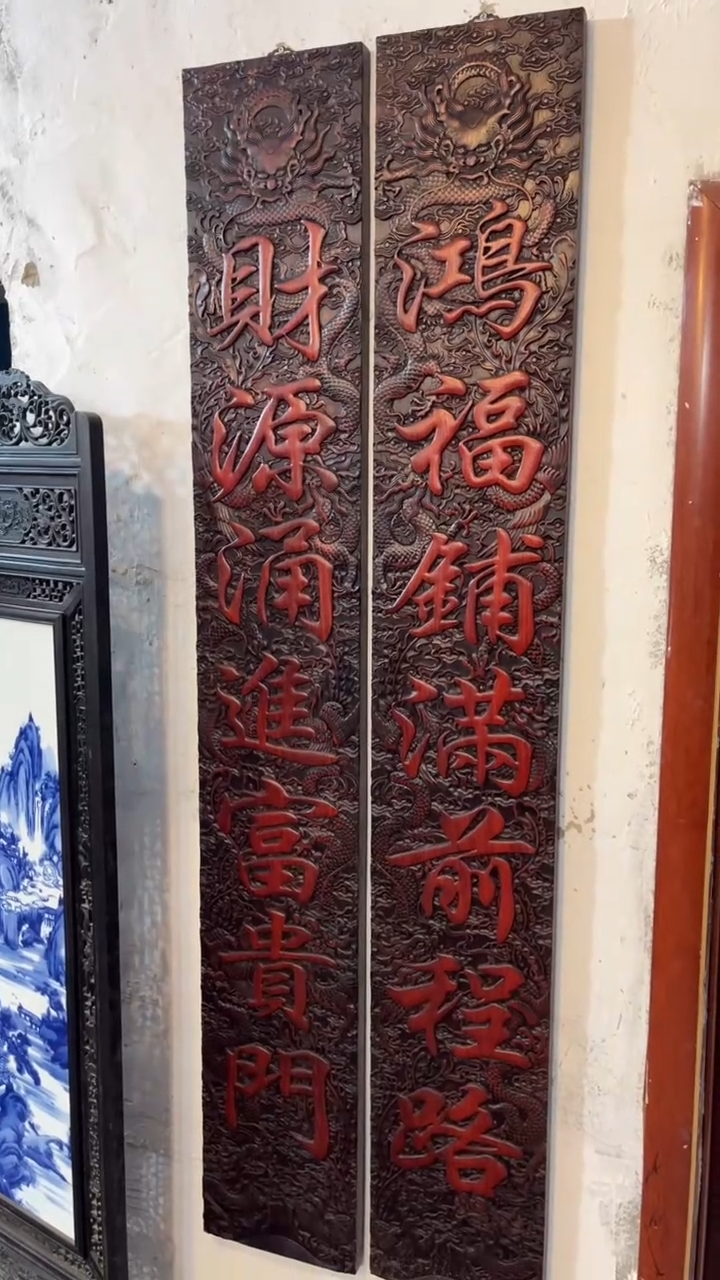 鴻福鋪滿前程路
財源涌進富貴門